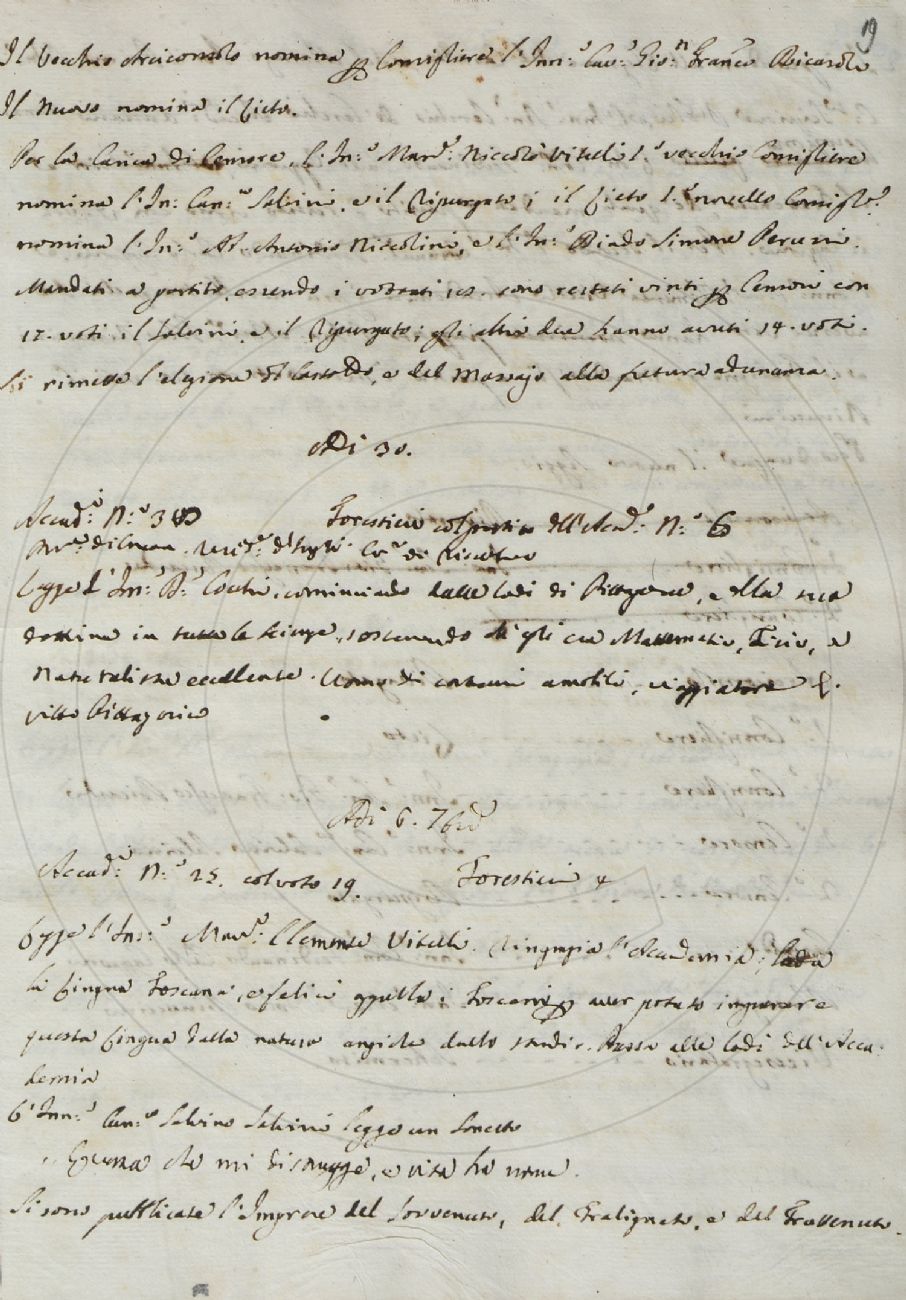 19
Il Vecchio Arciconsolo nomina p Consigliere l'Inn:° Cav:e Gio:n Franc.o Ricasoli
Il Nuovo nomina il Lieto.
Per la Carica di Censore, l'In:° Mar.e Niccolò Vitelli 1.° vecchio Consigliere
nomina l'In: Can:co Salvini, e il Ripurgato; il Lieto 1.° novello Consigl.e
nomina l'In:° Ab. Antonio Niccolini, e l'In:° Biado Simone Peruzzi.
Mandati a partito, essendo i votanti sono restati vinti p Censori con
17. voti il Salvini, e il Ripurgato; gli altri due hanno avuti 14. voti.
Si rimette l'elezione del Castaldo, e del Massajo alla futura adunanza.
Adi 30.
Accad:i N:° 3 Forestieri dell'Acad:a N:° 6
Legge l'Inn:° D:r Cocchi, cominciando dalle lodi di Pittagora, e della sua
dottrina in tutte le scienze, sostenendo ch'egli era Matematico, Fisico, e
Naturalista eccellente. Uomo di costumi amabili, viaggiatore &.
vitto Pittagorico
Adi 6. 7bre
Accad:i N:° 25. col voto 19. Forestieri 4
Legge l'Inn:° Mar.e Clemente Vitelli. Ringrazia l'Accademia; loda
la Lingua Toscana, e felici appella i Toscani p aver potuto imparare
questa Lingua dalla natura anziche dallo studio. Passa alle lodi dell'Acca-
demia
L'Inn:° Can:co Salvino Salvini legge un Sonetto
Guerra che mi distrugge, e vita ha nome.
Si sono pubblicate l'Imprese del Sovvenuto, del Tralignato, e del Trattenuto.